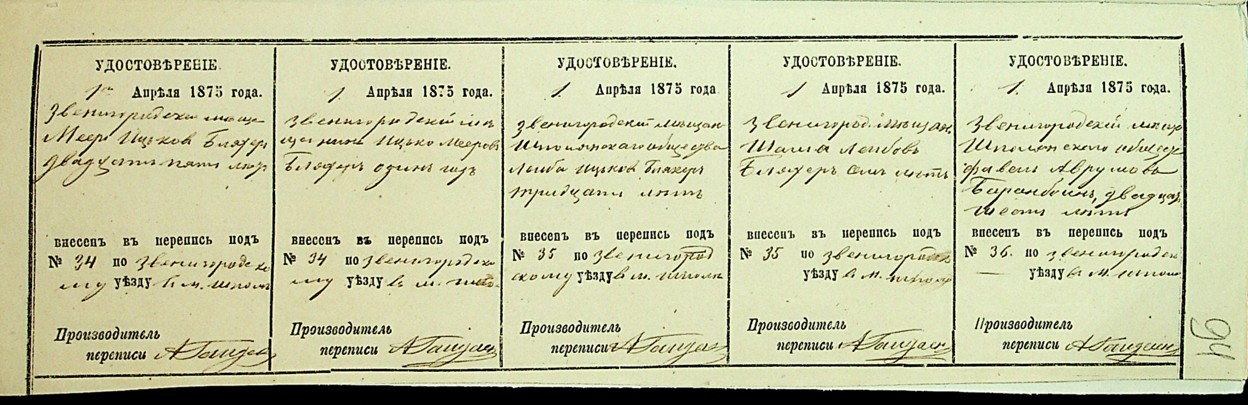 УДОСТОВѢРЕНІЕ.
1го Апрѣля 1875 года.
Звенигородскій мѣща-
Меер Ицков Бляхер
двадцати пяти лѣт
внесенъ въ перепись подъ
№ 34 по Звенигородско
му уѣзду в м. Шпола
Производитель
переписи
УДОСТОВѢРЕНІЕ.
1 Апрѣля 1875 года.
Звенигородскій мѣ
щанин Ицко Мееров
Бляхеръ один год
внесенъ въ перепись подъ
№ 34 по Звенигородско
му уѣзду в м. Шпо-
Производитель
переписи
УДОСТОВѢРЕНІЕ.
1 Апрѣля 1875 года
Звенигородскій мѣщан
Шполянскаго общества
Лейба Ицьков Бляхер
тридцати лѣтъ
внесенъ въ перепись подъ
№ 35 по Звенигород
скому уѣзду в м. Шпола
Производитель
переписи
УДОСТОВѢРЕНІЕ.
1 Апрѣля 1875 года.
Звенигород. мѣщан.
Шама Лейбовъ
Бляхеръ сем лѣтъ
внесенъ въ перепись подъ
№ 35 по Звенигородск
уѣзду в м. Шпола
Производитель
переписи
УДОСТОВѢРЕНІЕ.
1 Апрѣля 1875 года.
Звенигородскій мѣщ
Шполянскаго общес
Фавель Аврумовъ
двадца
шести лѣтъ
внесенъ въ перепись подъ
№ 36. по Звенигородск
уѣзду в м. Шпола
Производитель
переписи
94